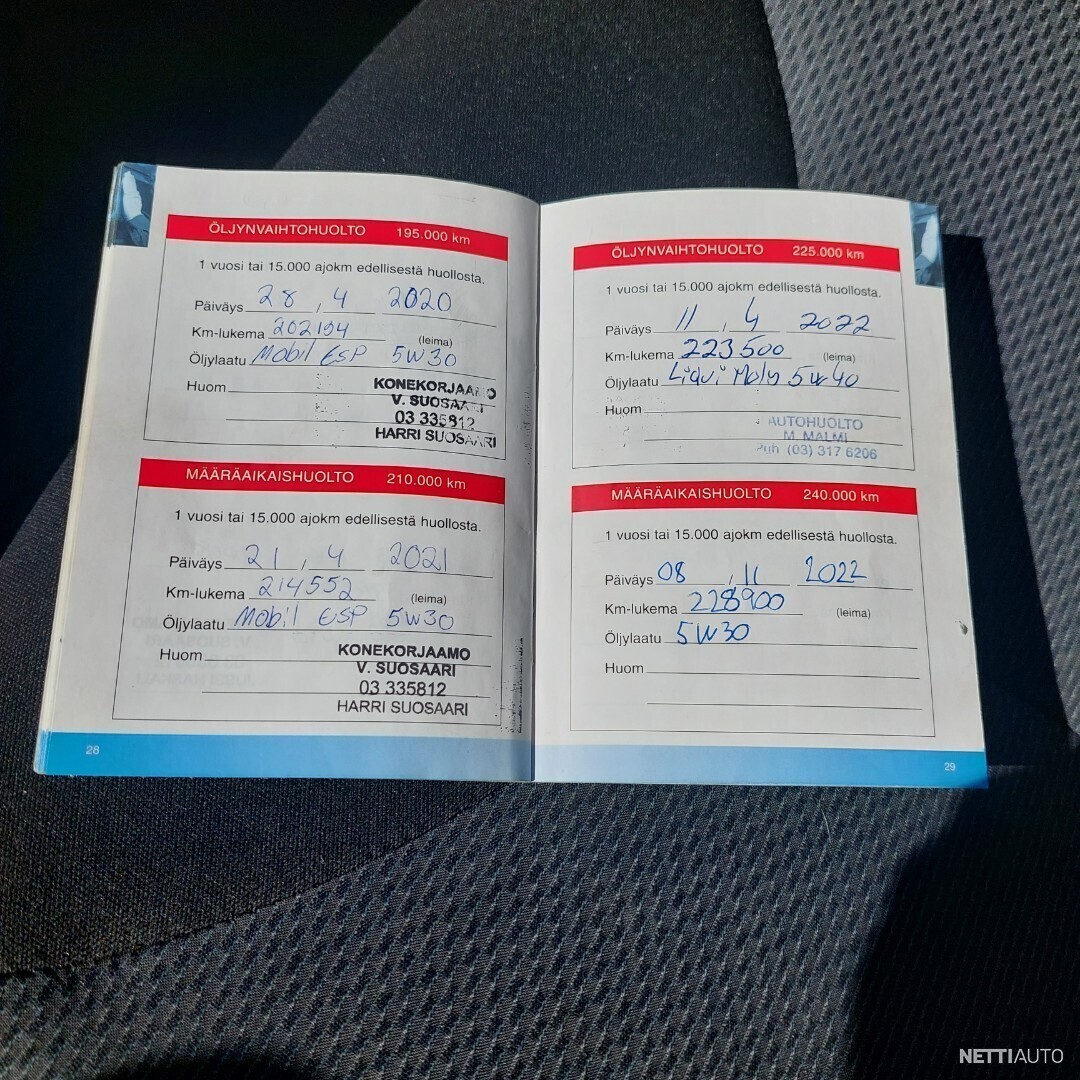 ÖLJYNVAIHTOHUOLTO 195.000 km
1 vuosi tai 15.000 ajokm edellisestä huollosta.
Päiväys 28 , 4 2020
Km-lukema 202194
(leima)
Öljylaatu Mobil ESP 5W30
Huom
KONEKORJAAMO
V. SUOSAARI
03 335812
HARRI SUOSAARI
MÄÄRÄAIKAISHUOLTO 210.000 km
1 vuosi tai 15.000 ajokm edellisestä huollosta.
Päiväys 21 , 4 2021
Km-lukema 214552
(leima)
Öljylaatu Mobil ESP 5W30
Huom
KONEKORJAAMO
V. SUOSAARI
03 335812
HARRI SUOSAARI
28
ÖLJYNVAIHTOHUOLTO 225.000 km
1 vuosi tai 15.000 ajokm edellisestä huollosta.
Päiväys 11 , 4 2022
Km-lukema 223500
(leima)
Öljylaatu Liqui Moly 5w40
Huom
AUTOHUOLTO
M. MALMI
Puh (03) 317 6206
MÄÄRÄAIKAISHUOLTO 240.000 km
1 vuosi tai 15.000 ajokm edellisestä huollosta.
Päiväys 08 , 11 2022
Km-lukema 228900
(leima)
Öljylaatu 5W30
Huom
29
NETTIAUTO